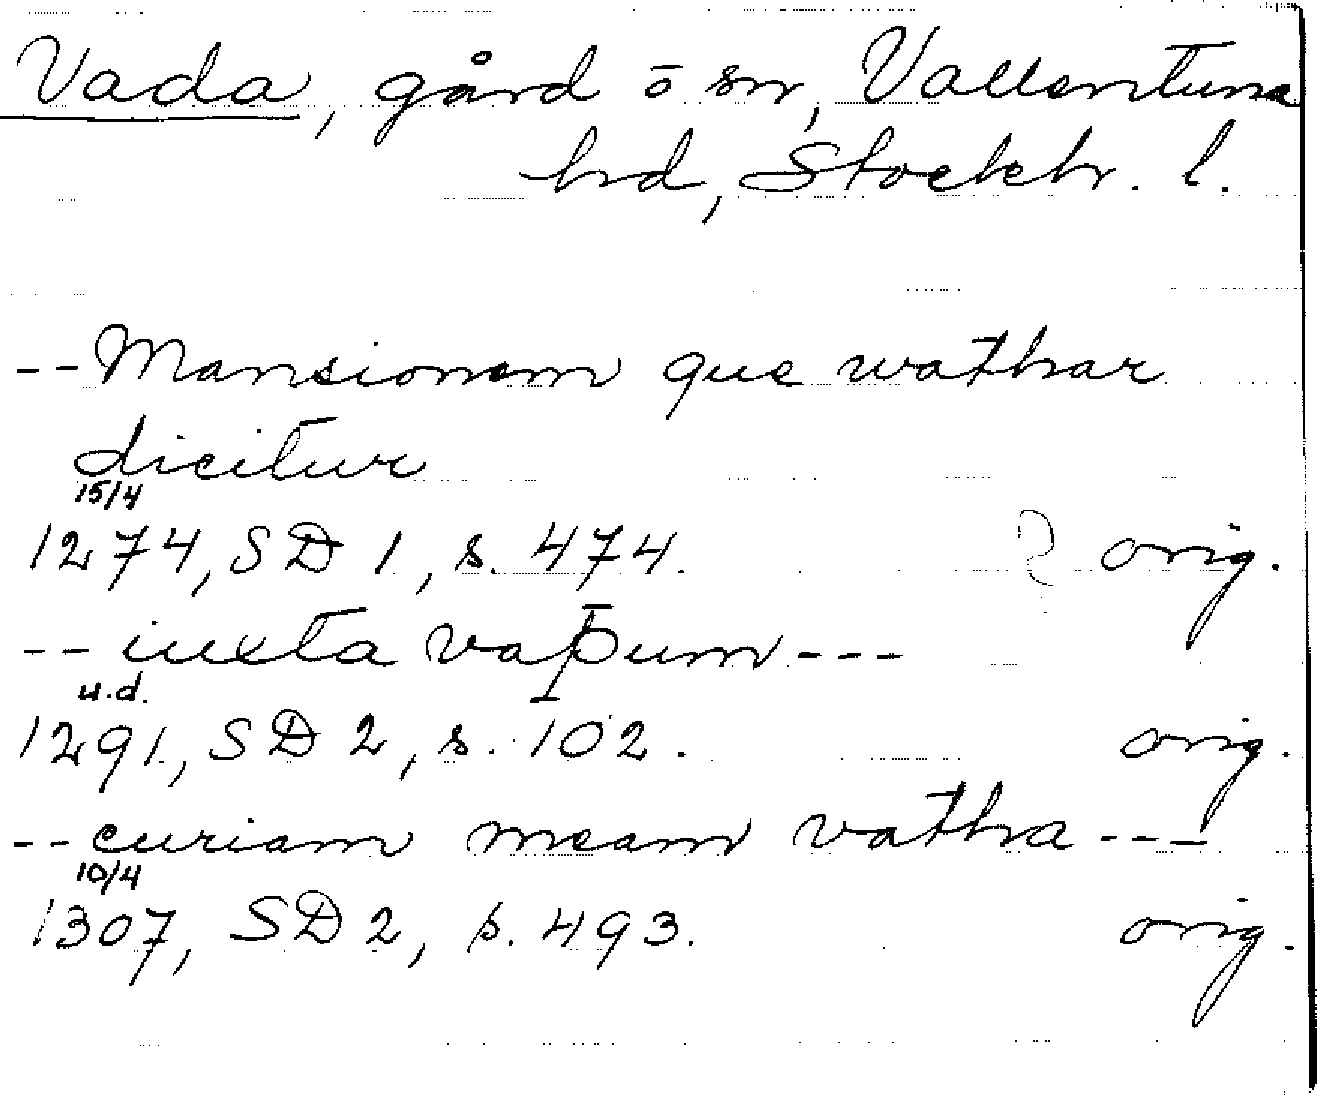 Vada, gård o sn, Vallentuna
hd, Stockh. l.
-- Mansionem que wathar
dicitur
15/4
1274, SD 1, s. 474. orig.
-- iuxta vaþum ---
u.d.
1291, SD 2, s. 102. orig.
-- curiam meam vatha ---
10/4
1307, SD 2, s. 493. orig.